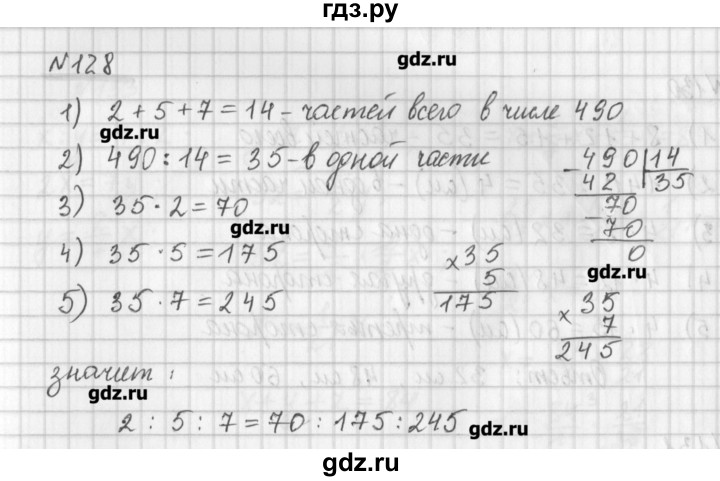 гдз.ру
№128
gdz.ru
1) 2+5+7=14-частей всего в числе 490
gdz.ru
2) 490:14=35-в одной части
-490|14
42 35
70
-70
0
3) 35·2=70
gdz.ru
gdz.ru
4) 35·5=175
×35
5
175
5) 35·7=245
×35
7
245
значит:
gdz.ru
2:5:7=70:175:245
gdz.ru
gdz.ru